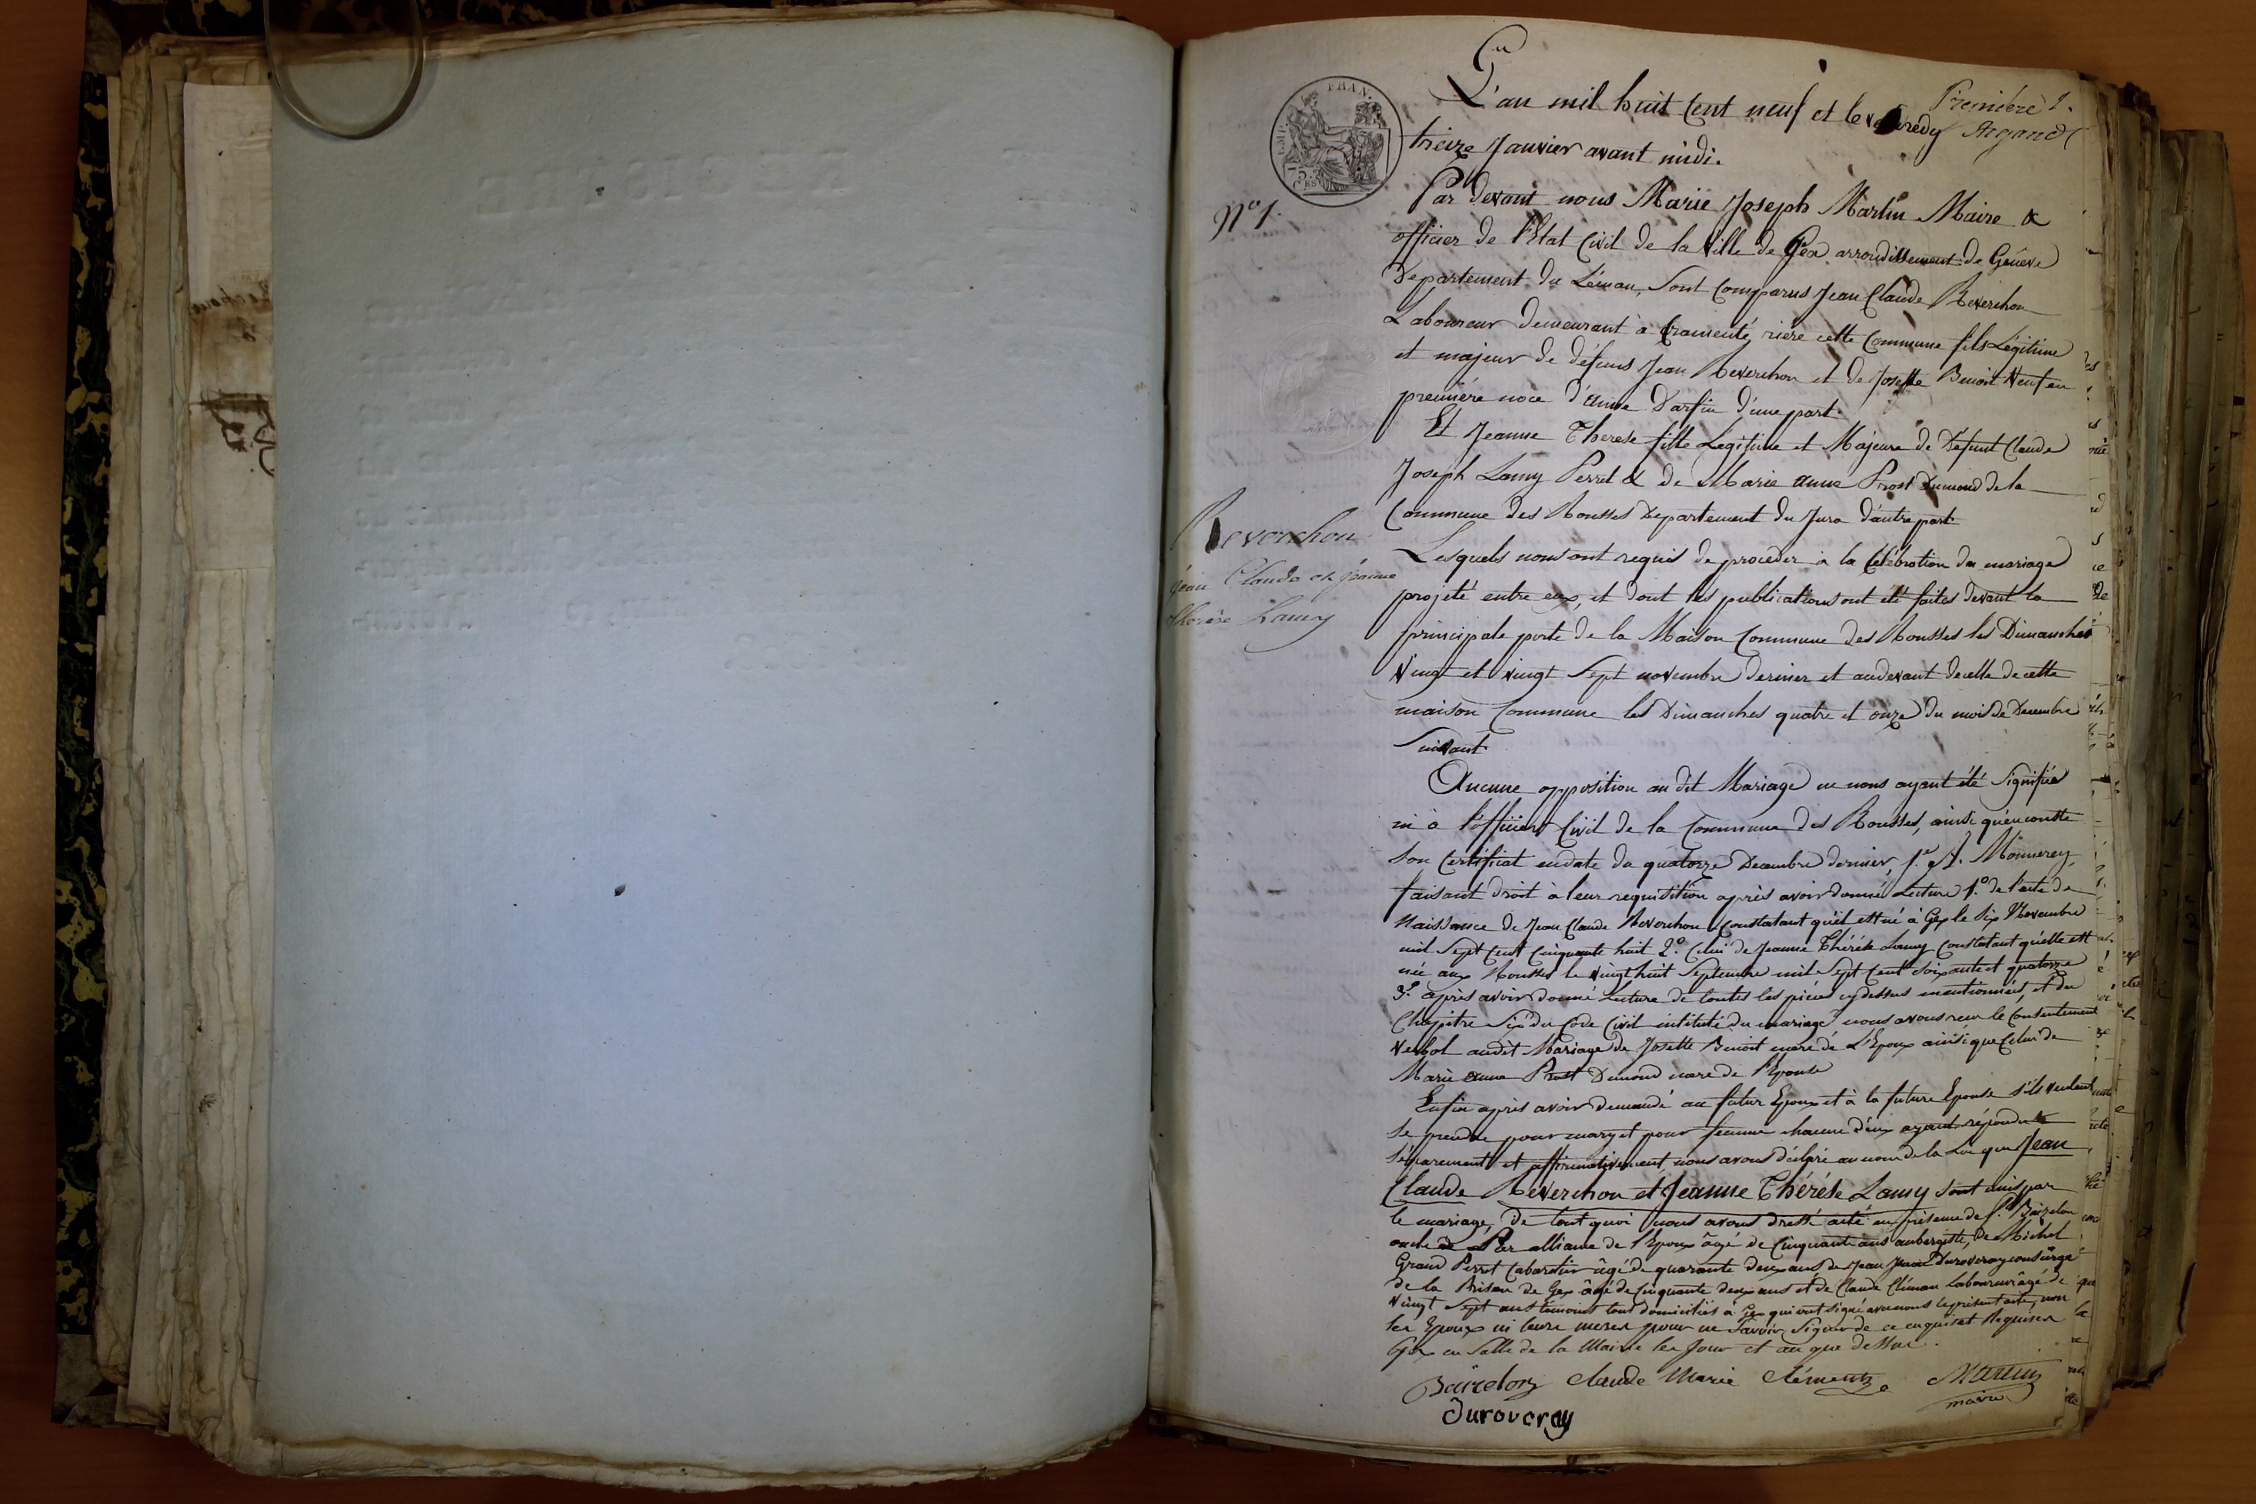 L'an mil huit Cent neuf et le vendredy
Première 1.
treize Janvier avant midi.
N° 1.
Par devant nous Marie Joseph Martin Maire &
officier de l'Etat Civil de la Ville de Gex arrondissement de Genève
Departement du Léman, Sont Comparus Jean Claude Reverchon
Laboureur demeurant à riére cette Commune fils Légitime
et majeur de défunt Jean Reverchon et de Josette Benoit Veuf en
première noce d'anne Darfin d'une part.
Et Jeanne Therese fille Legitime et Majeure de Defunt Claude
Joseph Lamy Perret & de Marie anne Prost Dumond de la
Commune des Rousses Departement du Jura d'autre part.
Reverchon
Jean Claude et jeanne
thérèse Lamy
Lesquels nous ont requis de procéder à la Célébration du mariage
projeté entre eux, et dont les publications ont été faites devant la
principale porte de la Maison Commune des Rousses les Dimanches
Vingt et vingt Sept novembre dernier et audevant de celle de cette
maison Commune les Dimanches quatre et onze du mois de Decembre
Suivant.
Aucune opposition au dit Mariage ne nous ayant été Signifiée
ni à l'officier Civil de la Commune des Rousses, ainsi qu'en conste
Son Certificat en date du quatorze Decembre dernier, Monnerey,
faisant droit à leur requisition après avoir donné Lecture 1.° de l'acte de
Naissance de Jean Claude Reverchon Constatant qu'il est né à Gex le Six Novembre
mil Sept Cent Cinquante huit 2.° Celui de Jeanne Thérése Lamy Constatant qu'elle est
née aux Rousses le vingt huit Septembre mil Sept Cent Soixante et quatorze
3.° après avoir donné Lecture de toutes les pièces cy dessus mentionnées, et du
Chapitre Six du Code Civil intitulé du mariage nous avons reçu le Consentement
Verbal audit Mariage de Josette Benoit mere de L'Epoux ainsi que Celui de
Marie anne Prost Dumond mere de l'Epouse
Enfin après avoir demandé au futur Epoux et à la future Epouse s'ils veulent
se prendre pour mary et pour femme chacun d'eux ayant répondu
Séparement et affirmativement, nous avons déclaré au nom de la Loi que Jean
Claude Reverchon et Jeanne Thérése Lamy sont unis par
le mariage, De tout quoi nous avons dressé acte en présence de
oncle Par alliance de l'Epoux âgé de Cinquante ans aubergiste, de Michel
Grand Perret Cabaretier âgé de quarante deux ans de Jean Duroveray concierge
de la Prison de Gex âgé de Cinquante deux ans et de Claude Clément Laboureur âgé de
Vingt Sept ans témoins tous domiciliés à Gex qui ont signé avec nous le présent acte, non
les Epoux ni leurs meres pour ne Savoir Signer de ce enquis et Requises
Gex en Salle de la Mairie les Jour et an que dessus.
claude Marie Martin
maire
Duroveray